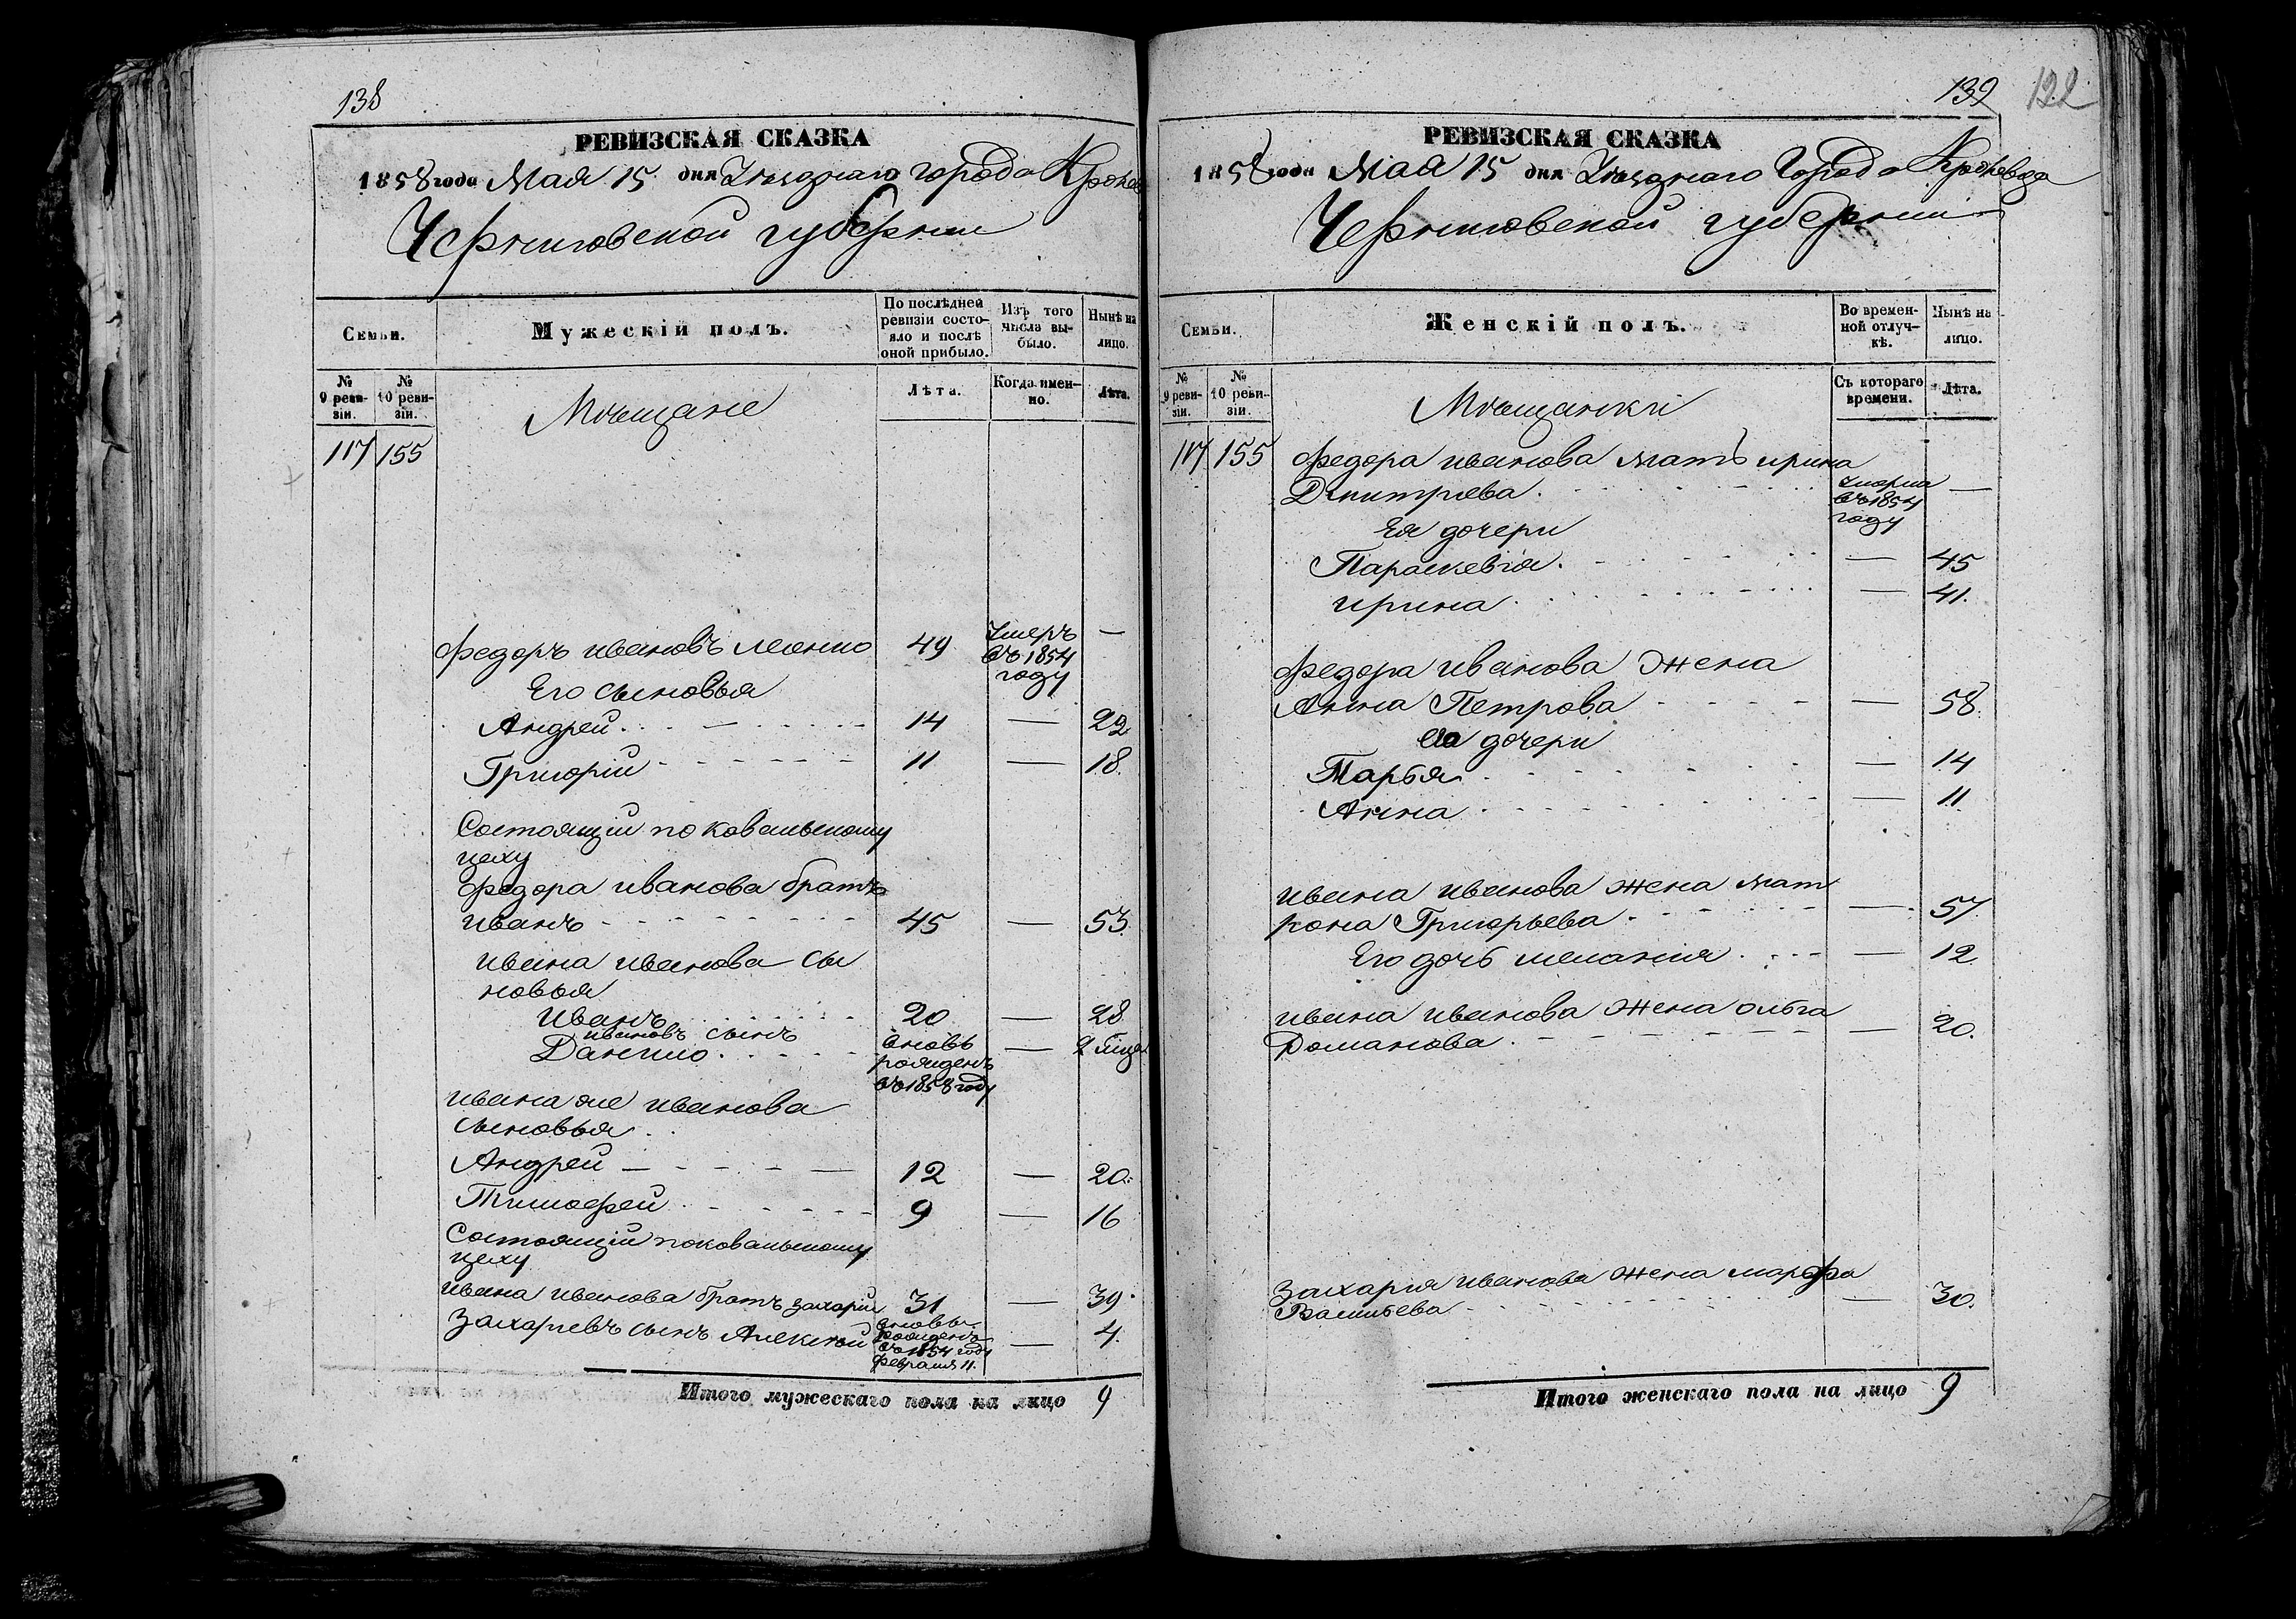 138
РЕВИЗСКАЯ СКАЗКА
1858 года Мая 15 дня Уѣзднаго города Кролев
Черниговской губерніи
Семьи.
Мужескій полъ.
По послѣдней ревизіи состояло и послѣ оной прибыло.
Изъ того числа выбыло.
Нынѣ на лицо.
№ 9 ревизіи.
№ 10 ревизіи.
Мѣщане
Лѣта.
Когда именно.
Лѣта.
117 155
Федоръ Ивановъ 49 Умеръ въ 1854 году —
Его сыновья
Андрей 14 — 22
Григорій 11 — 18.
Состоящій по ковальскому
цеху
Федора Иванова братъ
Иванъ 45 — 53.
Ивана Иванова сы
новья
Иванъ 20 — 28
Ивановъ сынъ
Данило вновь рожденъ въ 1858 году —
Ивана же Иванова
сыновья
Андрей 12 — 20.
Тимофей 9 — 16
Состоящій по ковальскому
цеху
Ивана Иванова братъ Захарій 31 — 39.
Захаріевъ сынъ Алексѣй вновь рожденъ въ 1854 году февраля 11. — 4.
Итого мужескаго пола на лицо 9
139
122
РЕВИЗСКАЯ СКАЗКА
1858 года Мая 15 дня Уѣзднаго Города Кролевца
Черниговской губерніи
Семьи.
Женскій полъ.
Во временной отлучкѣ.
Нынѣ на лицо.
№ 9 ревизіи.
№ 10 ревизіи.
Мѣщанки
Съ котораго времени.
Лѣта.
117 155 Федора Иванова мать Ирина
Дмитріева. Умерла въ 1854 году —
Ея дочери
Параскевія. — 45
Ирина — 41.
Федора Иванова жена
Анна Петрова — 58.
Ея дочери
Марья — 14
Анна — 11.
Ивана Иванова жена Мат
рона Григорьева — 57.
Его дочь Меланія — 12.
Ивана Иванова жена Ольга
Романова — 20.
Захарія Иванова жена Марфа
Васильева — 30.
Итого женскаго пола на лицо 9